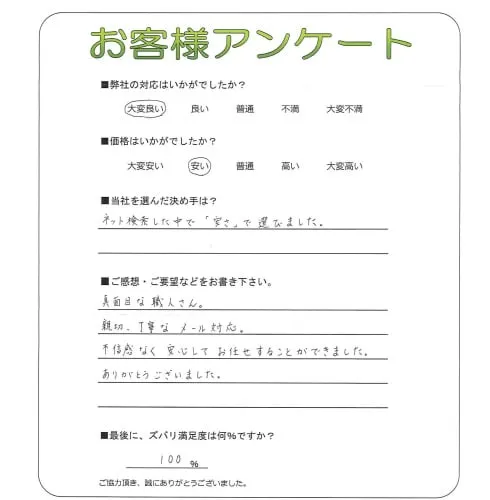 お客様アンケート
■弊社の対応はいかがでしたか？
大変良い 良い 普通 不満 大変不満
■価格はいかがでしたか？
大変安い 安い 普通 高い 大変高い
■当社を選んだ決め手は？
ネット検索した中で「安さ」で選びました。
■ご感想・ご要望などをお書き下さい。
真面目な職人さん。
親切、丁寧なメール対応。
不信感なく安心してお任せすることができました。
ありがとうございました。
■最後に、ズバリ満足度は何％ですか？
100 %
ご協力頂き、誠にありがとうございました。